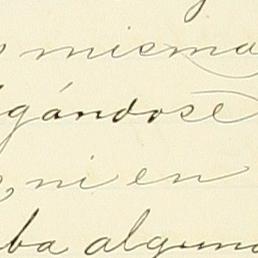 misma
gándose
, ni en
ba alguna